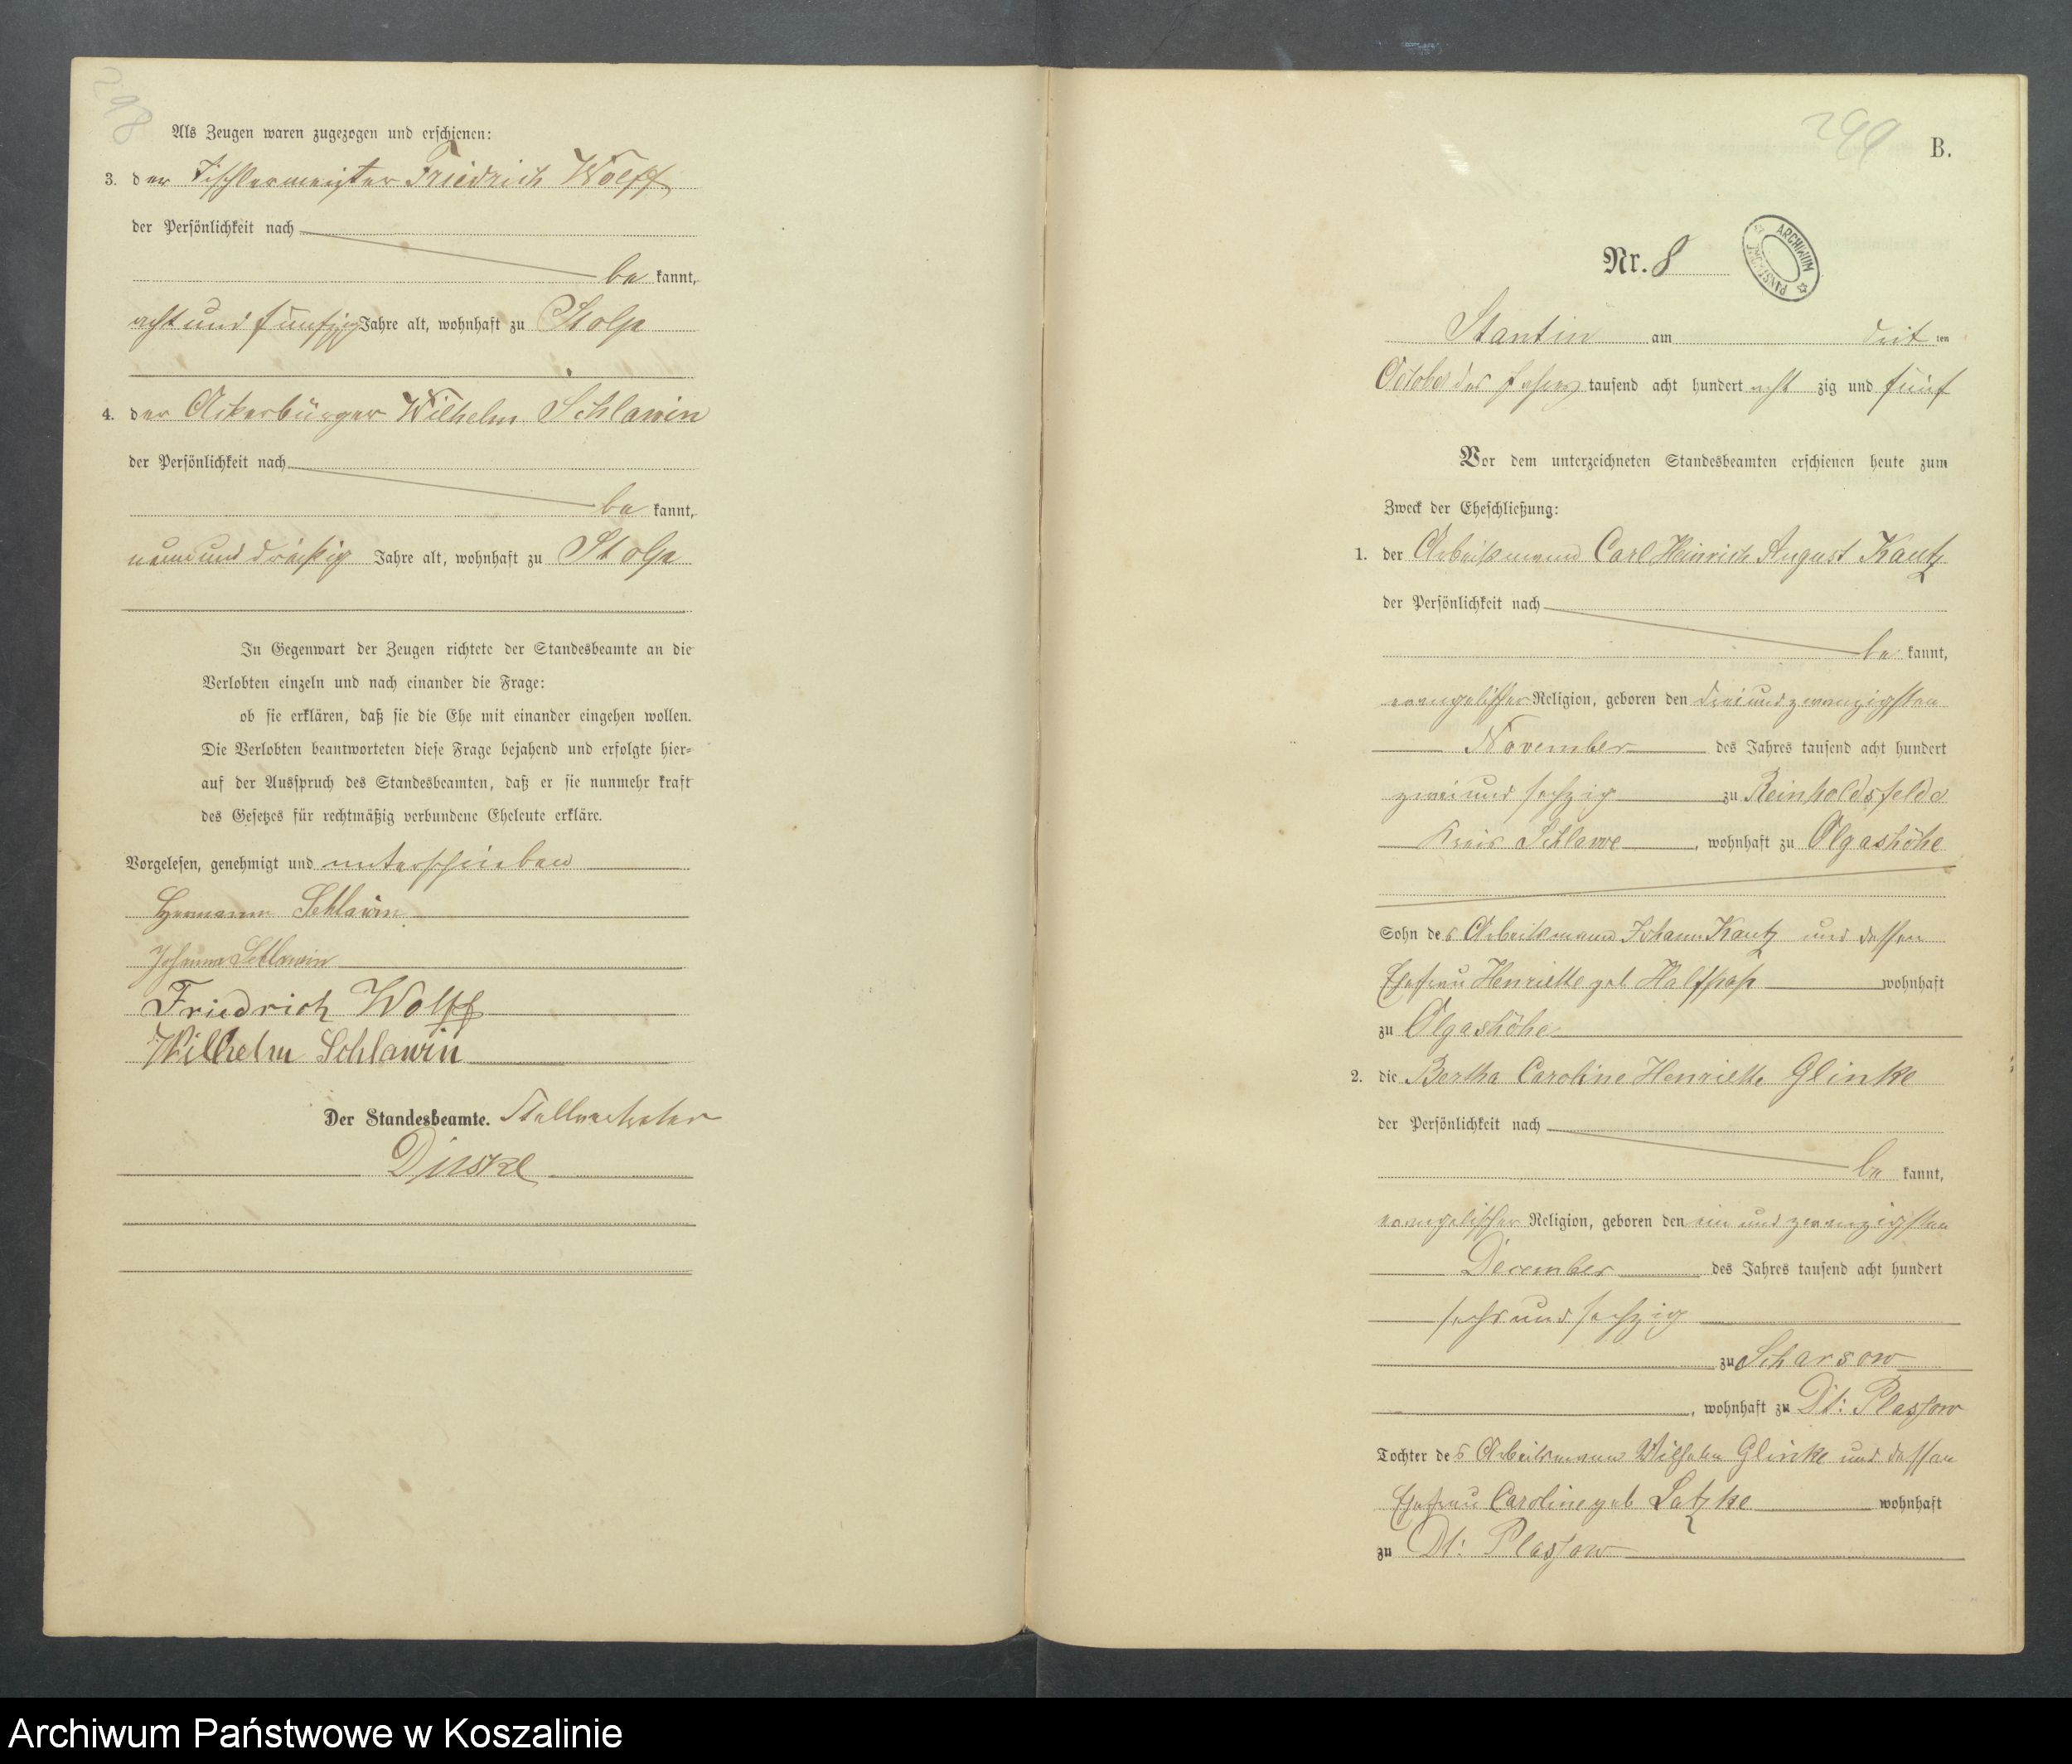 298
Als Zeugen waren zugezogen und erschienen:
3. der Tischlermeister Friedrich Wolff
der Persönlichkeit nach
be kannt,
acht und fünfzig Jahre alt, wohnhaft zu Stolp
4. der Ackerbürger Wilhelm Schlawin
der Persönlichkeit nach
be kannt,
neun und dreißig Jahre alt, wohnhaft zu Stolp
In Gegenwart der Zeugen richtete der Standesbeamte an die
Verlobten einzeln und nach einander die Frage:
ob sie erklären, daß sie die Ehe mit einander eingehen wollen.
Die Verlobten beantworteten diese Frage bejahend und erfolgte hier-
auf der Ausspruch des Standesbeamten, daß er sie nunmehr kraft
des Gesetzes für rechtmäßig verbundene Eheleute erkläre.
Vorgelesen, genehmigt und unterschrieben
Hermann Schlawin
Johanna Schlawin
Friedrich Wolff
Wilhelm Schlawin
Der Standesbeamte. Stellvertreter
299
B.
Nr. 8
ARCHIWUM PAŃSTWOWE
Stantin am drit ten
October des Jahres tausend acht hundert acht zig und fünf
Vor dem unterzeichneten Standesbeamten erschienen heute zum
Zweck der Eheschließung:
1. der Arbeitsmann Carl Heinrich August Kautz
der Persönlichkeit nach
be kannt,
evangelischer Religion, geboren den drei und zwanzigsten
November des Jahres tausend acht hundert
zwei und sechzig zu Reinholdsfelde
Kreis Schlawe, wohnhaft zu Olgashöhe
Sohn des Arbeitsmann Johann Kautz und dessen
Ehefrau Henriette geb Halfpap wohnhaft
zu Olgashöhe
2. die Bertha Caroline Henriette Glinke
der Persönlichkeit nach
be kannt,
evangelischer Religion, geboren den ein und zwanzigsten
December des Jahres tausend acht hundert
sechs und sechzig
zu Scharsow
, wohnhaft zu Dt: Plassow
Tochter des Arbeitsmann Wilhelm Glinke und dessen
Ehefrau Caroline geb Latzke wohnhaft
zu Dt: Plassow
Archiwum Państwowe w Koszalinie